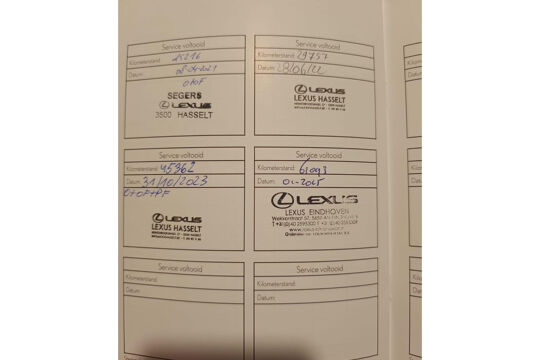 Service voltooid
Kilometerstand: 25216
Datum:
SEGERS
LEXUS
3500 HASSELT
Service voltooid
Kilometerstand: 29757
Datum: 28/06/22
LEXUS
LEXUS HASSELT
Service voltooid
Kilometerstand: 45362
Datum: 31/10/2023
O+OF+PF
LEXUS
LEXUS HASSELT
Service voltooid
Kilometerstand: 61093
Datum: 01-2025
LEXUS
LEXUS EINDHOVEN
Service voltooid
Kilometerstand:
Datum:
Service voltooid
Kilometerstand:
Datum: